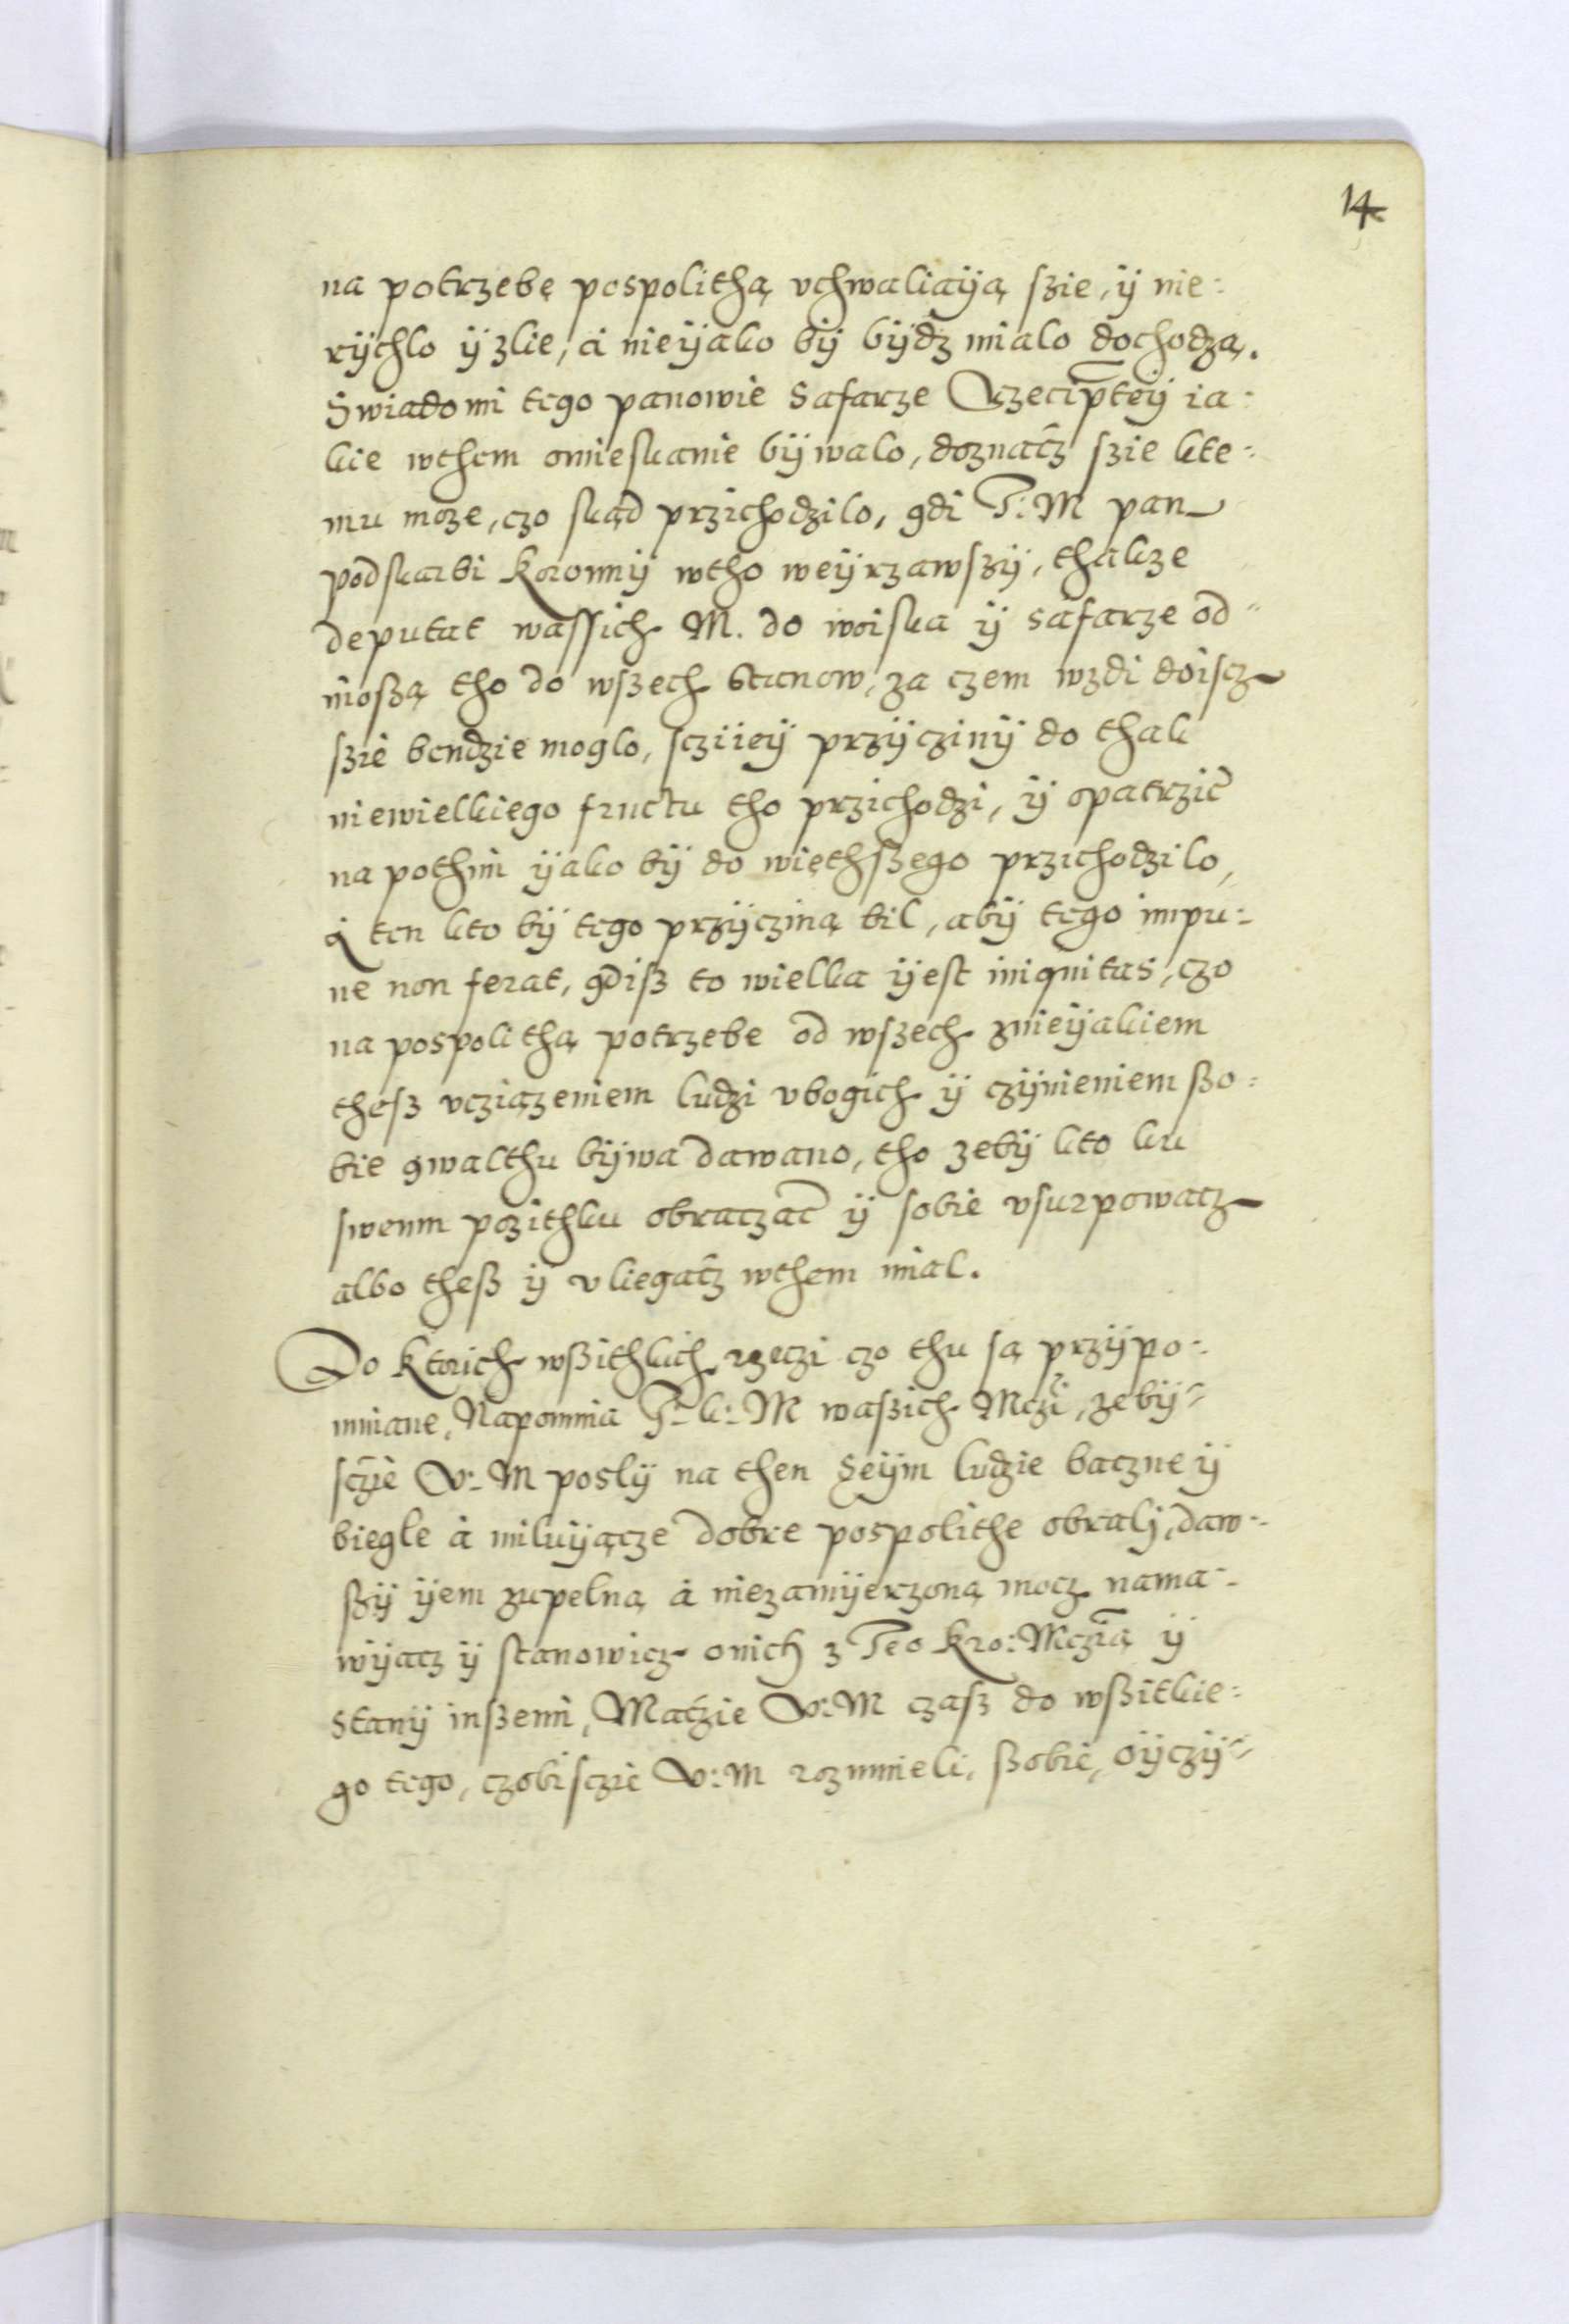 14
na potrzebę pospolithą vchwaliayą szie, ÿ nie:
rÿchlo ÿ zlie, à nieÿako bÿ bÿdz mialo dochodzą.
Swiadomi tego panowie Safarze Rzeciptèÿ ia:
kie wthem omieskanie bÿwalo, doznacz szie kte:
mu moze, czo skąd przichodzilo, gdi J: M pan
podskarbi Koronnÿ wtho weÿrzawszÿ, thakze
deputat wassich M. do woiska ÿ safarze od=
nioszą tho do wszech Stanow, za czem wzdi doiscz
szie bendzie moglo, scziieÿ przÿczinÿ do thak
niewielkiego fructu tho przichodzi, ÿ opatrzić
na pothim ÿako bÿ do więthszego przichodzilo,
A ten kto bÿ tego przÿcziną bil, abÿ tego impu:
ne non ferat, gdisz to wielka ÿest iniquitas, czo
na pospolithą potrzebe od wszech znieÿakiem
thesz vcziązeniem ludzi vbogich ÿ czÿnieniem szo:
bie gwalthu bÿwa dawano, tho zebÿ kto ku
swemu pozithku obraczać ÿ sobie vsurpowacz
albo thesz ÿ vliegacz wthem mial.
Do Ktorich wszithkich rzeczi czo thu są przÿpo:
mniane, Napomina J: k: M waszich Mczi, zebÿ=
sczie V: M poslÿ na then Seÿm ludzie baczne ÿ
biegle à miluÿącze dobre pospolithe obralj, daw:
szÿ ÿem zupelną à niezamÿerzoną mocz nama:
wÿacz ÿ stanowicz onich z Jeo Kro: Mczią ÿ
stanÿ inszemi, Maczie V: M czasz do wszitkie:
go tego, czobisczie V: M rozumieli, szobie, oÿczÿ=